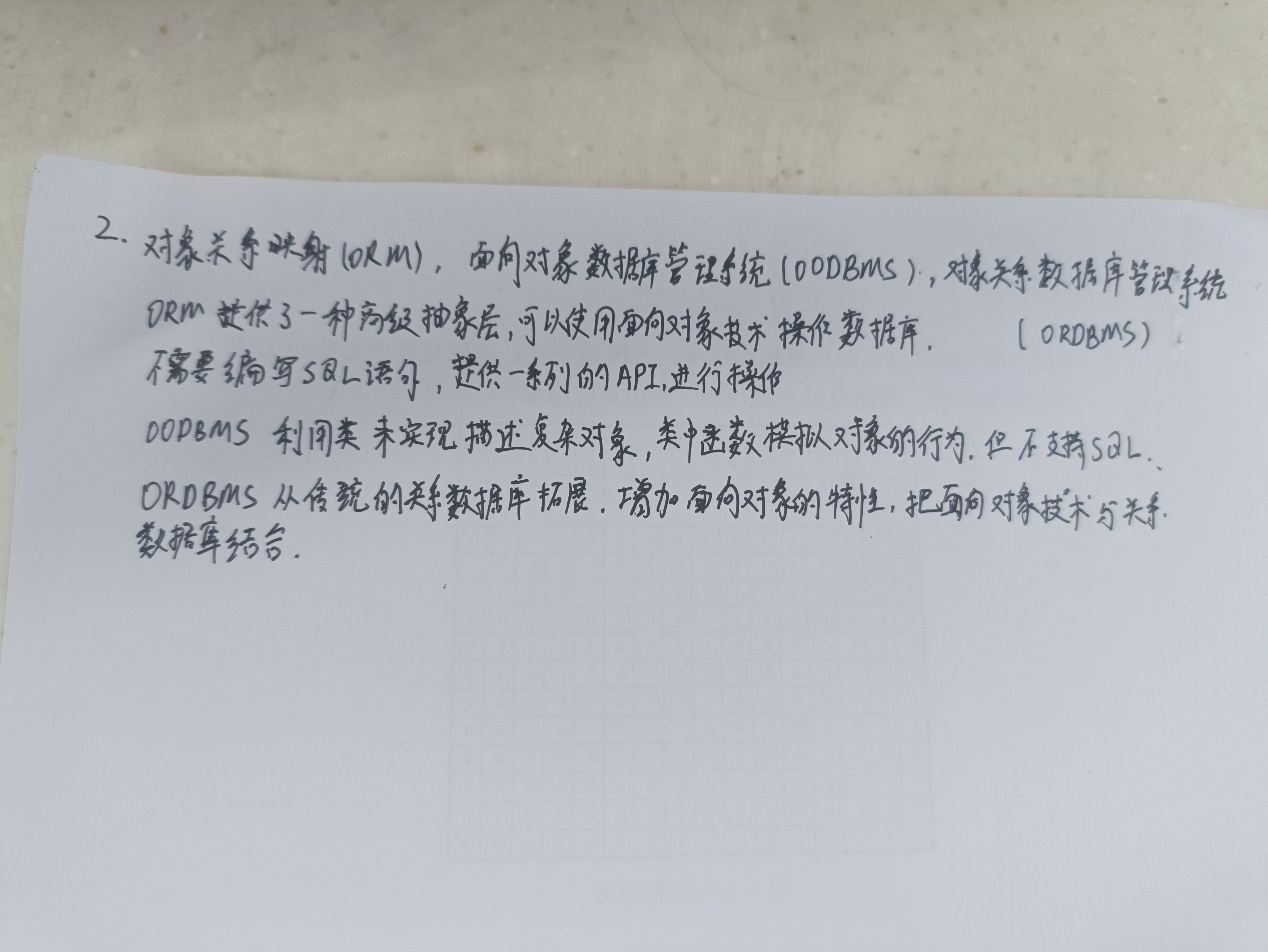 2. 对象关系映射(ORM), 面向对象数据库管理系统(OODBMS), 对象关系数据库管理系统
ORM 提供了一种高级抽象层,可以使用面向对象技术 操作数据库. (ORDBMS)
不需要编写SQL语句, 提供一系列的API,进行操作
OODBMS 利用类来实现描述复杂对象, 类中函数模拟对象的行为. 但不支持SQL.
ORDBMS 从传统的关系数据库拓展. 增加面向对象的特性, 把面向对象技术与关系
数据库结合.